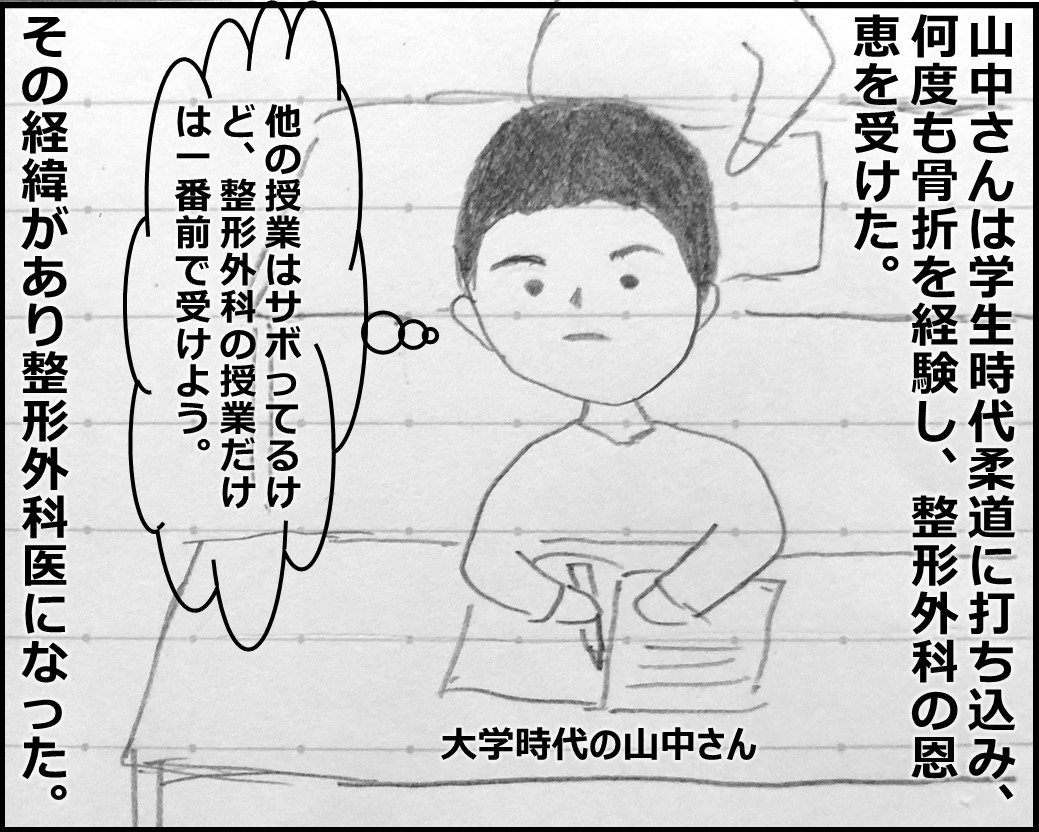 山中さんは学生時代柔道に打ち込み、
何度も骨折を経験し、整形外科の恩
恵を受けた。
他の授業はサボってるけ
ど、整形外科の授業だけ
は一番前で受けよう。
大学時代の山中さん
その経緯があり整形外科医になった。